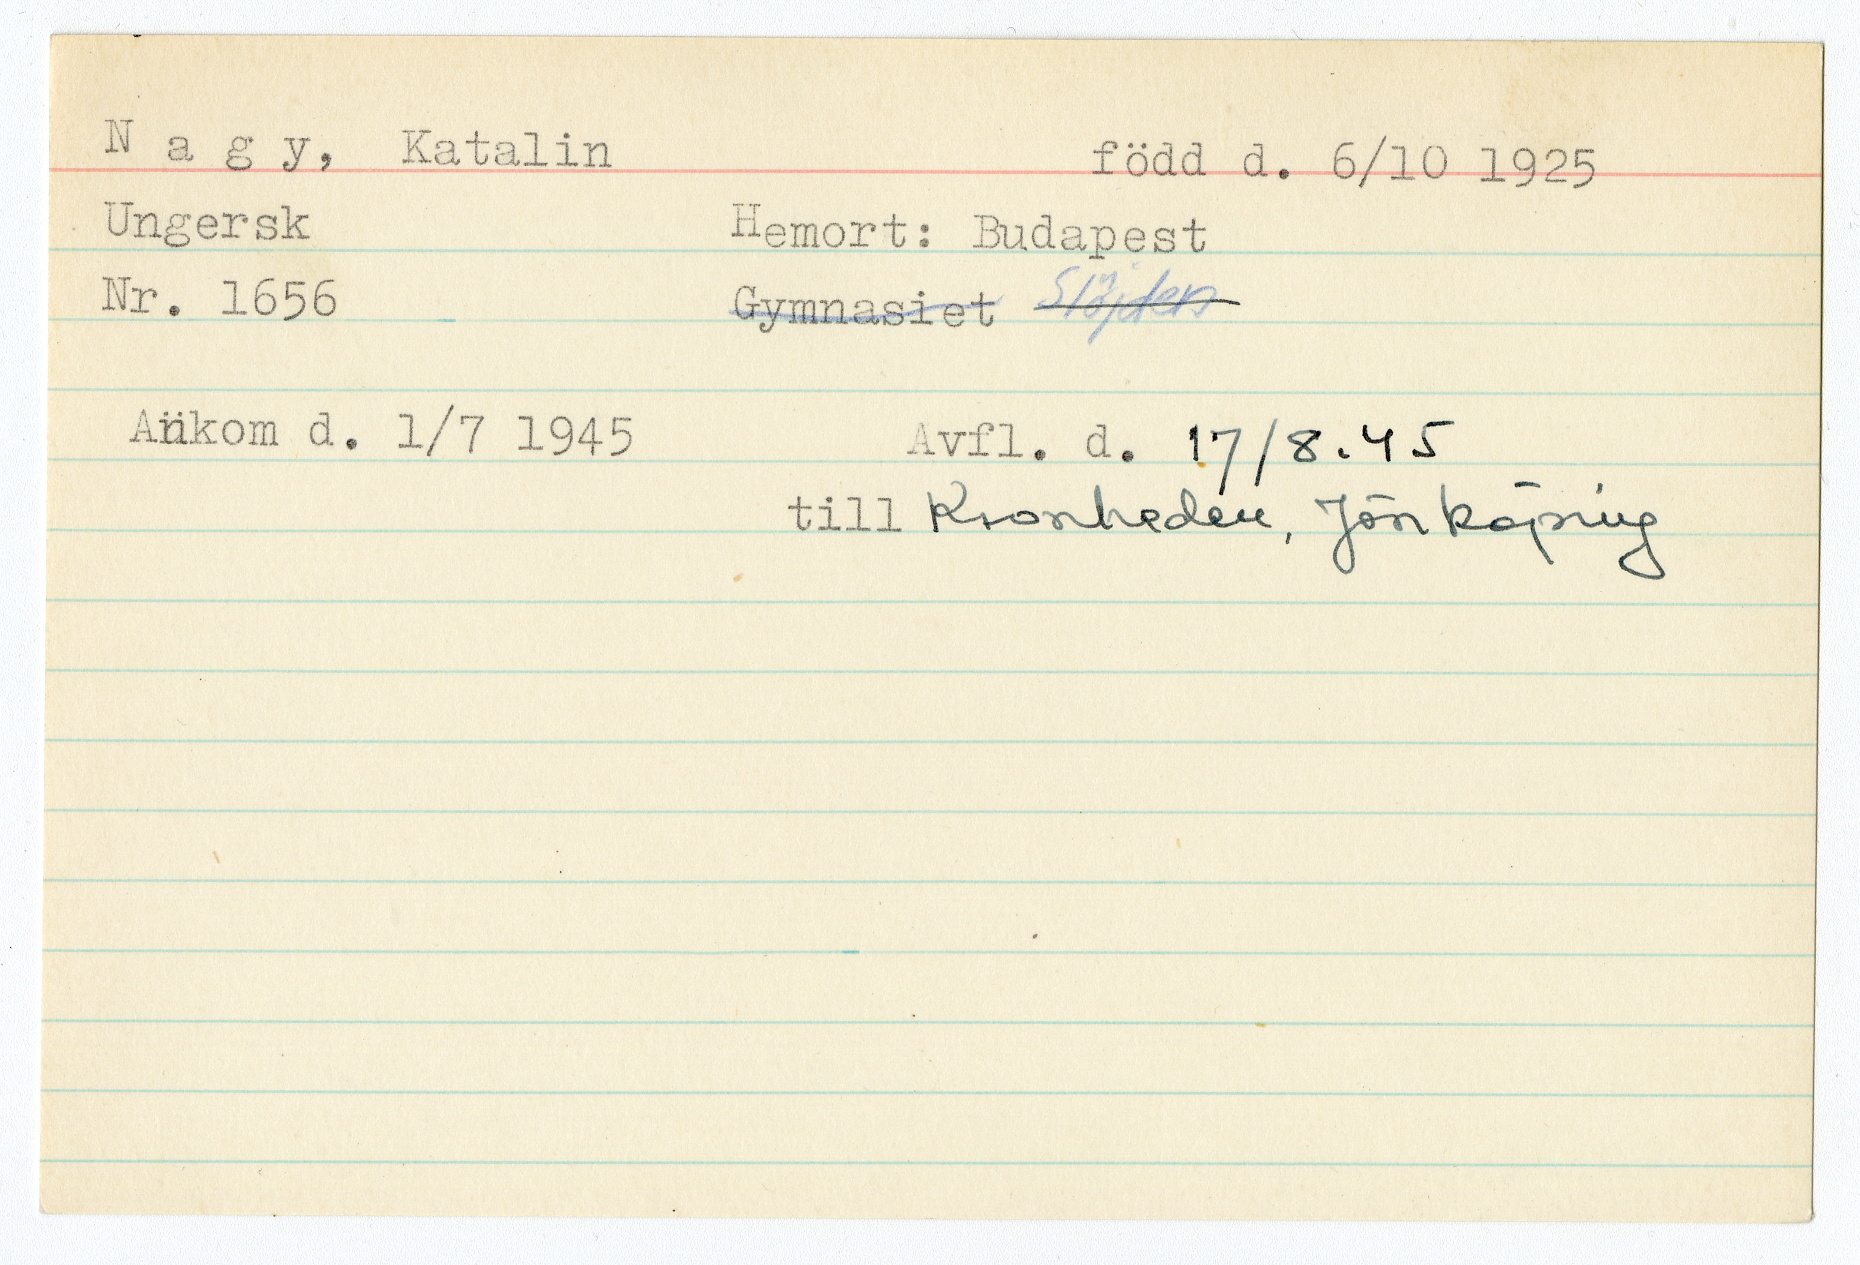 N a g y, Katalin född d. 6/10 1925
Ungersk Hemort: Budapest
Nr. 1656 Gymnasiet Slöjden
Ankom d. 1/7 1945 Avfl. d. 17/8.45
till Kronheden, Jönköping